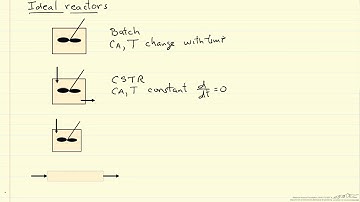 Ideal reactors
Batch
CA, T change with time
CSTR
CA, T constant d/dt = 0